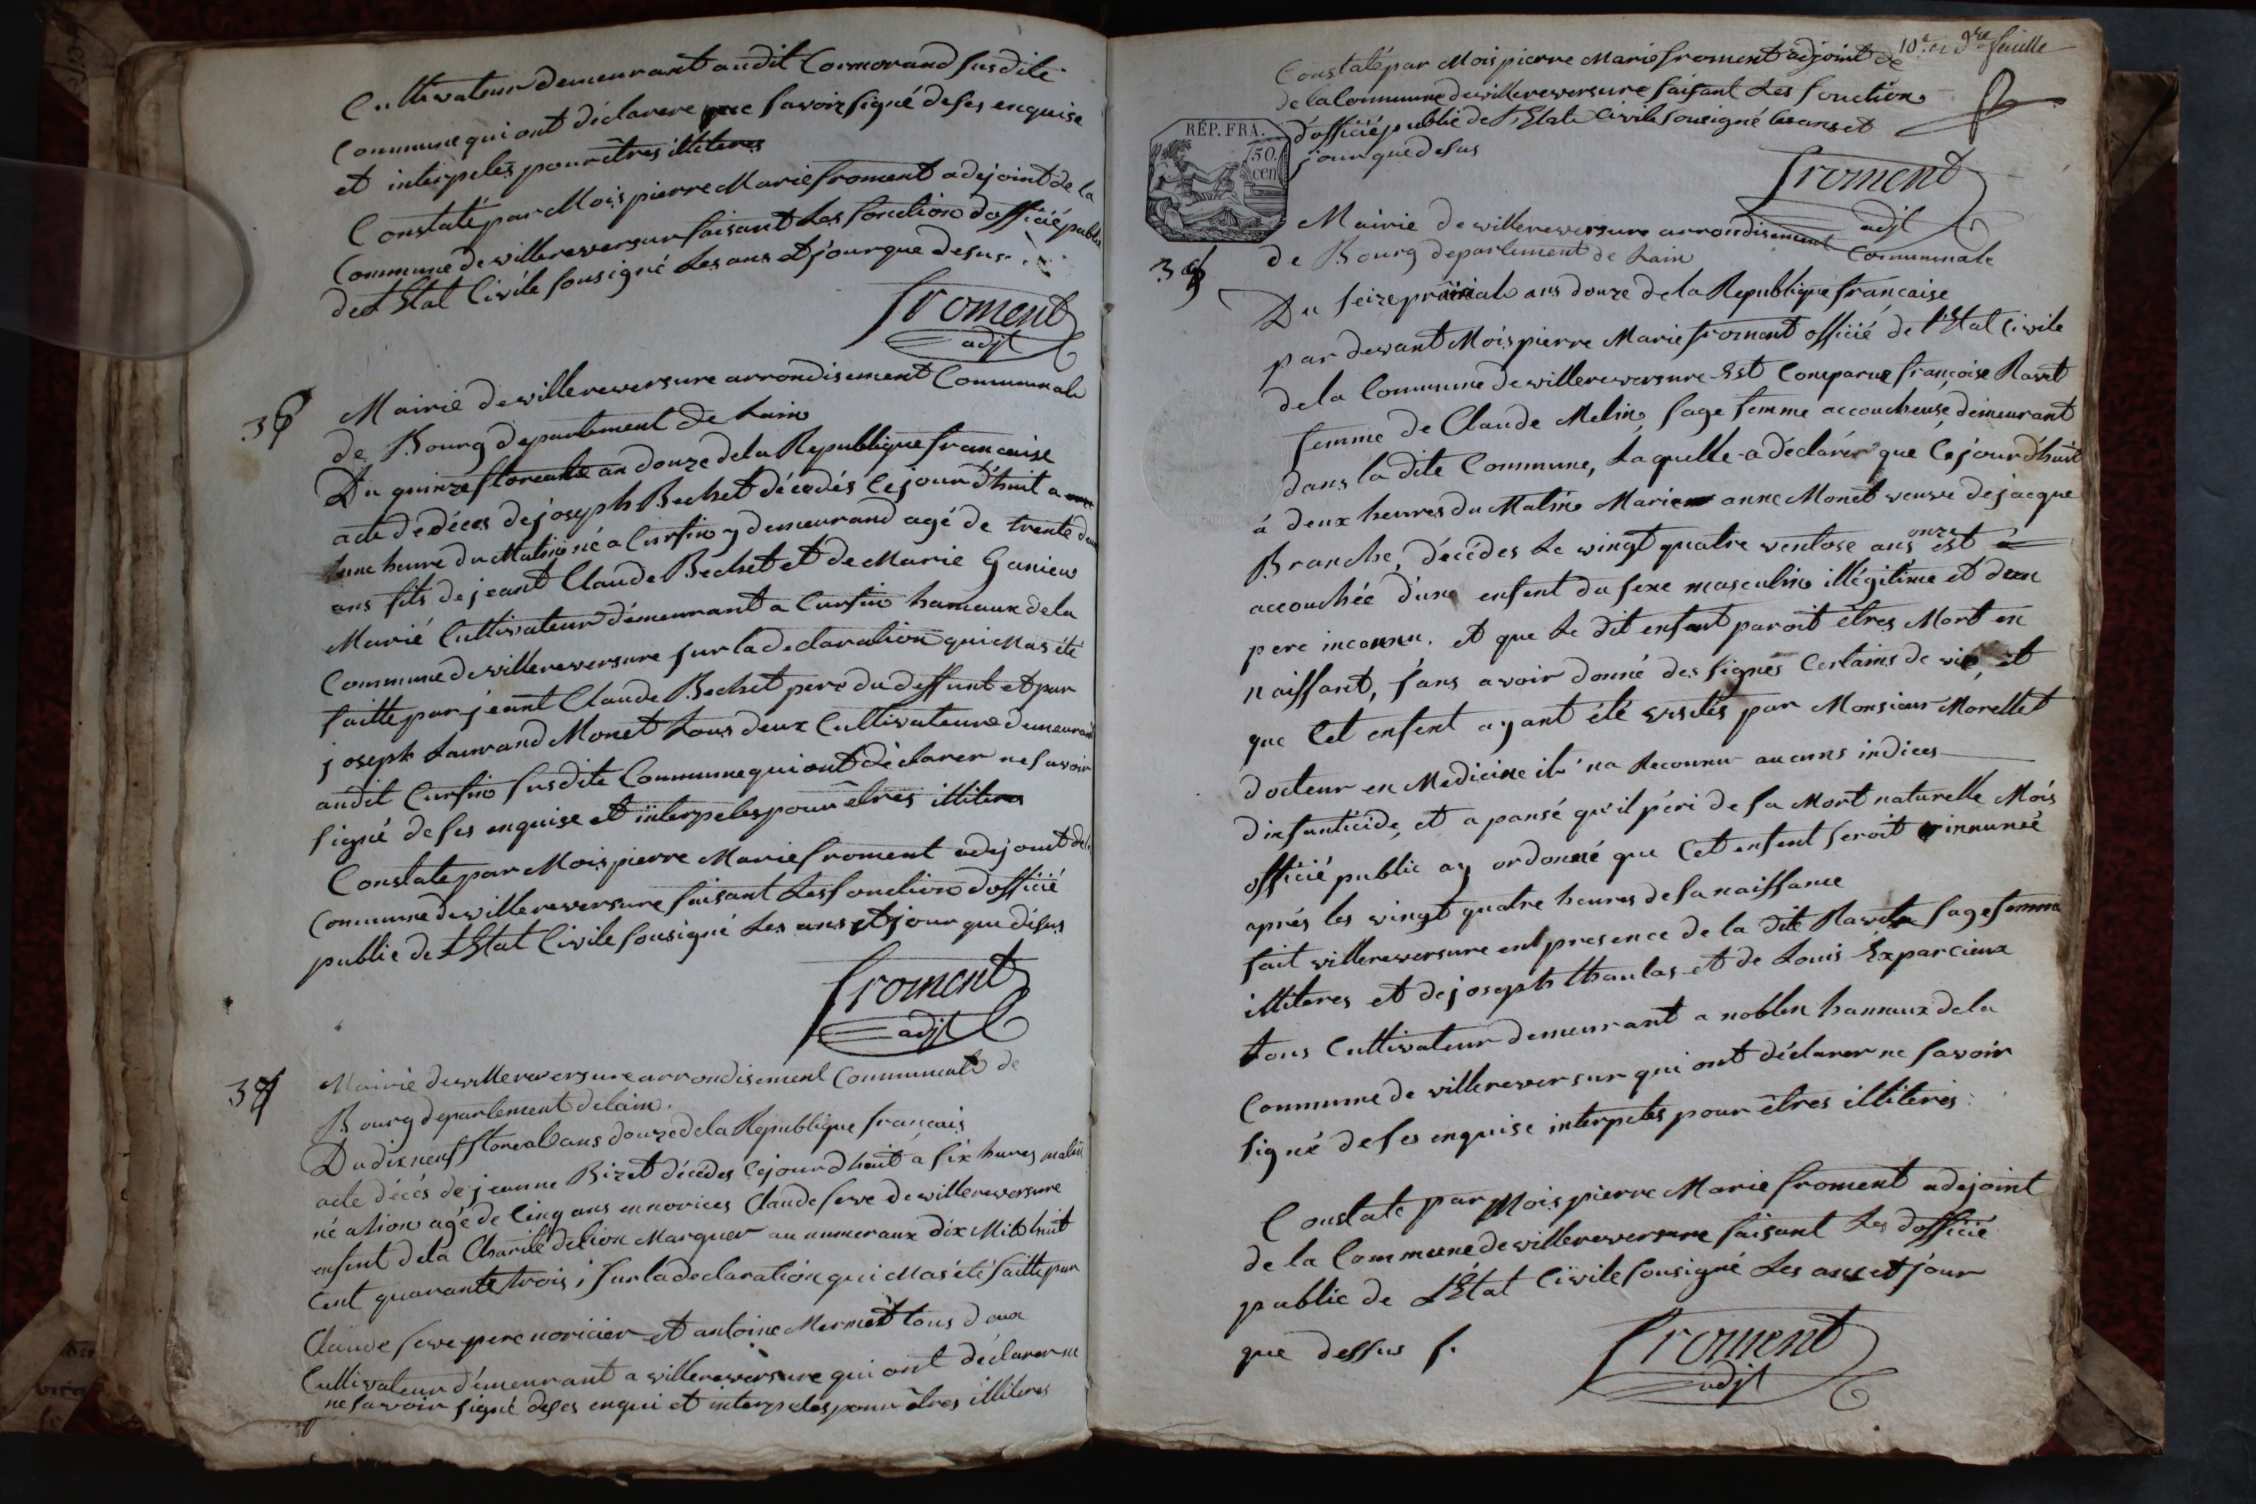 Cultivateur demeurant audit Cormorand susdite
Commune qui ont déclarere ne savoir signé de ses enquise
et interpelés pour êtres illiteres
Constaté par Mois pierre Marie froment adejoint de la
Commune de villereversur faisant Les fonction d'officié public
de L'Etat Civile sousigné Les ans & jour que desus
froment
adjt
36
Mairie de villereversure arrondisement Communale
de Bourg departement de Lain
Du quinze floreale an douze de la Republique francaise
acte dédéces de joseph Bechet décedés Cejourd'huit a
une heure du Matin né a Cursin y demeurand agé de trente deux
ans fils de jeant Claude Bechet et de Marie Ganieu
Marié Cultivateur démeurant a Cursin hamaux de la
Commune de villereversure sur la declaration qui Mas été
faitte par jéant Claude Bechet pere du deffunt et par
joseph Laurand Monet tous deux Cultivateure demeurant
audit Cursin susdite Commune qui ont déclarer ne savoir
signé de ses enquise et interpeles pour êtres illiteres
Constate par Mois pierre Marie froment adejoint de la
Commune de villereversure faisant Les fonction d'officié
public de L'Etat Civile sousigné Les ans et jour que désus
froment
adjt
37
Mairie de villereversure arrondisement Communale de
Bourg departement de lain.
Du dix neuf floreal ans douze de la Republique français
acte décés de jeanne Bizet décédes Cejourdhuit a six hures matin
né a lion agé de Cinq ans en norices Claude serve de villereversure
enfent de la Charité de lion Marquer au numeraux dix Mile huit
Cent quarante trois, sur la declaration qui Mas été faitte par
Claude serve pere noricier et antoine Mermet tous deux
Cultivateur démeurant a villereversure qui ont déclarer ne
ne savoir signé deses enqui et interpelés pour êtres illiteres
10e et dre feuille
Constaté par Mois pierre Marie froment adjoint de
de la Commune de villereversure faisant Les fonction
d'officié public de L'Etat Civile sousigné les ans et
jour que desus
RÉP. FRA.
50.
cen
froment
adjt
38
Mairie de villereversure arrondisement Communale
de Bourg departement de Lain
Du seize prairial ans douze de la Republique française
par devant Mois pierre Marie froment officié de l'Etat Civile
de la Commune de villereversure Est Comparue françoise Ravet
femme de Claude Melin, sage femme accoucheuse, démeurant
dans la dite Commune, Laquelle a déclarér que Cejourd'huit
á deux heures du Matin Marie anne Monet veuve de jacque
Branche, décédes Le vingt quatre ventose ans onze est
accouchée d'une enfent du sexe masculin illégitime et d'un
pere inconnu. et que Le dit enfant paroit êtres Mort en
naissant, sans avoir donné des signes Certains de vie, et
que Cet enfent ayant été visités par Monsieur Morellet
docteur en Medicine il n'a Reconnu aucuns indices
dinfanticide, et a pansé qu'il péri de sa Mort naturelle Mois
officié public ay ordonné que Cet enfent seroit innumée
aprés les vingt quatre heures de sa naissance
fait villereversure ent presence de la dite Ravet sage femme
illiteres et de joseph thaulas et de Louis Exparcieux
tous Cultivateur demeurant a noblen hamaux de la
Commune de villereversur qui ont déclarer ne savoir
signé de ses enquise interpeles pour êtres illiteres
Constate par Mois pierre Marie froment adejoint
de la Commune de villereversure faisant Les d'officié
public de L'Etat Civile sousigné Les ans et jour
que dessus f.
froment
adjt